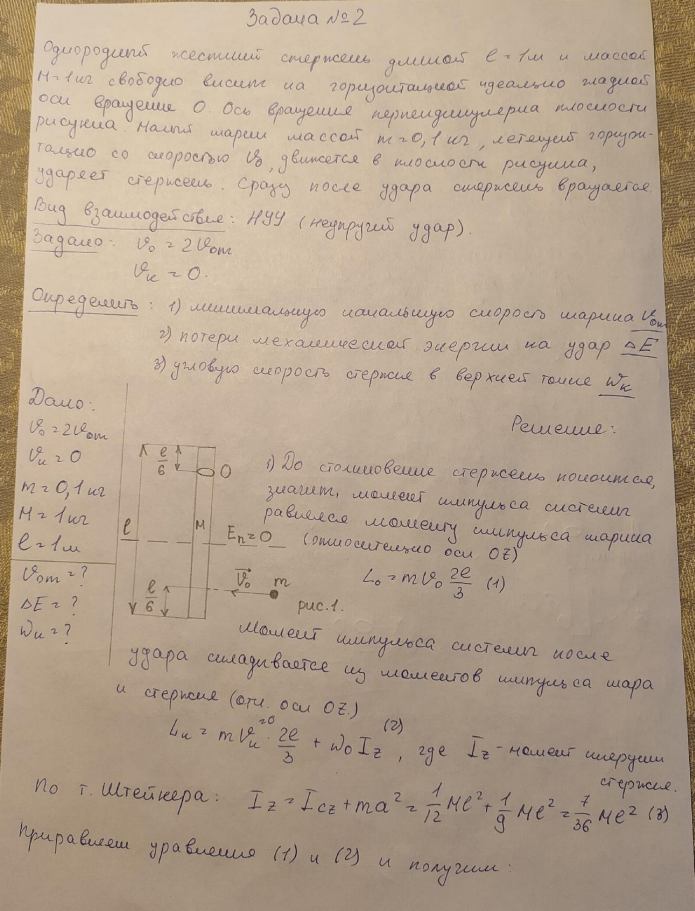 Задача №2
Однородный жесткий стержень длиной l = 1м и массой
M = 1 кг свободно висит на горизонтальной идеально гладкой
оси вращение O. Ось вращения перпендикулярна плоскости
рисунка. Малый шарик массой m = 0,1 кг, летящий горизон-
тально со скоростью v₀, движется в плоскости рисунка,
ударяет стержень. Сразу после удара стержень вращается.
Вид взаимодействия: НУУ (неупругий удар).
Задано: v₀ = 2v₀m
vк = 0.
Определить: 1) минимальную начальную скорость шарика v₀m
2) потери механической энергии на удар ΔE
3) угловую скорость стержня в верхней точке ωк
Дано:
v₀ = 2v₀m
vк = 0
m = 0,1 кг
M = 1 кг
l = 1 м
v₀m = ?
ΔE = ?
ωк = ?
l/6
O
l
M
Eп = 0
l/6
v⃗₀
m
рис. 1.
Решение:
1) До столкновение стержень покоится,
значит, момент импульса системы
равняется моменту импульса шарика
(относительно оси OZ)
L₀ = mv₀ 2l/3 (1)
Момент импульса системы после
удара складывается из моментов импульса шара
и стержня (отн. оси OZ)
Lк = mvк⁼⁰ · 2l/3 + ω₀Iz (2), где Iz - момент инерции
стержня.
По т. Штейнера: Iz = Icz + ma² = 1/12 Ml² + 1/9 Ml² = 7/36 Ml² (3)
Приравняем уравнения (1) и (2) и получим: